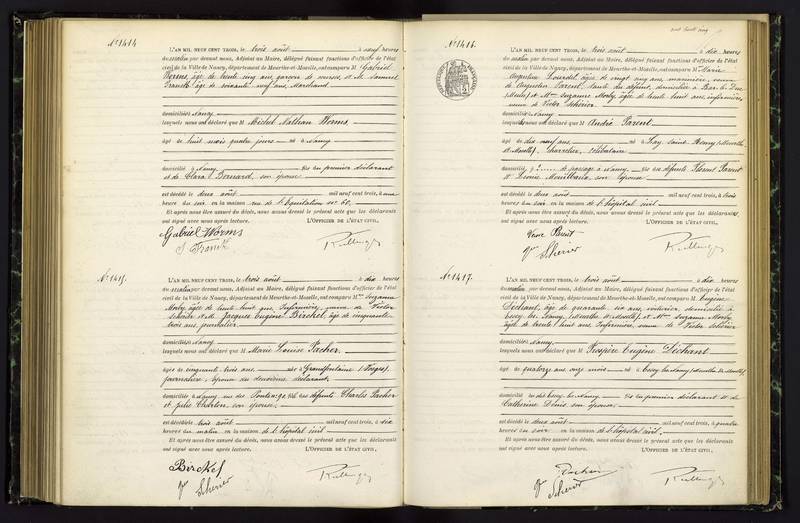 N° 1414
L'AN MIL NEUF CENT TROIS, le trois août à neuf heures
du matin par devant nous, Adjoint au Maire, délégué faisant fonctions d'officier de l'état
civil de la Ville de Nancy, département de Meurthe-et-Moselle, ont comparu M. Gabriel
Worms, âgé de trente cinq ans garçon de courses, et M. Samuel
Franck âgé de soixante neuf ans, Marchand
domiciliés à Nancy
lesquels nous ont déclaré que Michel Nathan Worms,
âgé de huit mois quatre jours né à Nancy
domicilié à Nancy fils du premier déclarant
et de Clara Bernard, son épouse
est décédé le deux août mil neuf cent trois, à une
heure du soir, en la maison rue de l'Equitation n°
Et après nous être assuré du décès, nous avons dressé le présent acte que les déclarants
ont signé avec nous après lecture. L'OFFICIER DE L'ÉTAT CIVIL,
Gabriel Worms
S. Franck
N° 1415.
L'AN MIL NEUF CENT TROIS, le trois août à dix heures
du matin par devant nous, Adjoint au Maire, délégué faisant fonctions d'officier de l'état
civil de la Ville de Nancy, département de Meurthe-et-Moselle, ont comparu Mme Suzanne
Morby âgée de trente huit ans, Infirmière, veuve de Victor
Scherier et M. Jacques Eugène Birckel, âgé de cinquante
trois ans journalier
domiciliés à Nancy
lesquels nous ont déclaré que Marie Louise Pacher
âgée de cinquante trois ans née à Grandfontaine (Vosges)
journalière, épouse du deuxième déclarant,
domiciliée à Nancy rue des fille des défunts Charles Pacher
et Julie son épouse
est décédée trois août mil neuf cent trois, à dix
heures du matin, en la maison de l'hôpital civil
Et après nous être assuré du décès, nous avons dressé le présent acte que les déclarants
ont signé avec nous après lecture. L'OFFICIER DE L'ÉTAT CIVIL,
Birckel
Vve Scherier
N° 1416.
L'AN MIL NEUF CENT TROIS, le trois août à dix heures
du matin par devant nous, Adjoint au Maire, délégué faisant fonctions d'officier de l'état
civil de la Ville de Nancy, département de Meurthe-et-Moselle, ont comparu M Marie
Augustine Lourdel âgée de vingt cinq ans, veuve
de Augustin Parent, du défunt, domiciliée à Bar-le-Duc
(Meuse) et Mme Suzanne Morby âgée de trente huit ans, infirmière,
veuve de Victor Scherier
domiciliés à Nancy
lesquels nous ont déclaré que André Parent
âgé de dix neuf ans né à (Meurthe
et Moselle), charretier, célibataire
domicilié à de passage à Nancy, fils des défunts Florent Parent
et son épouse
est décédé le deux août mil neuf cent trois, à trois
heures du soir en la maison de l'hôpital civil
Et après nous être assuré du décès, nous avons dressé le présent acte que les déclarants
ont signé avec nous après lecture. L'OFFICIER DE L'ÉTAT CIVIL,
Vve Scherier
N° 1417.
L'AN MIL NEUF CENT TROIS, le trois août à dix heures
du matin par devant nous, Adjoint au Maire, délégué faisant fonctions d'officier de l'état
civil de la Ville de Nancy, département de Meurthe-et-Moselle, ont comparu M. Eugène
Déchant, âgé de quarante six ans, voiturier, domicilié à
Essey-les-Nancy, (Meurthe et Moselle), et Mme Suzanne Morby
âgée de trente huit ans, Infirmière, veuve de Victor Scherier
domiciliés à Nancy
lesquels nous ont déclaré que Prospère Eugène Déchant
âgé de quatorze ans onze mois né à Essey-les-Nancy (Meurthe et Moselle)
domicilié à Essey-les-Nancy fils du premier déclarant et de
Catherine Denis son épouse
est décédé le deux août mil neuf cent trois, à quatre
heures du soir en la maison de l'hôpital civil,
Et après nous être assuré du décès, nous avons dressé le présent acte que les déclarants
ont signé avec nous après lecture. L'OFFICIER DE L'ÉTAT CIVIL,
Vve Scherier